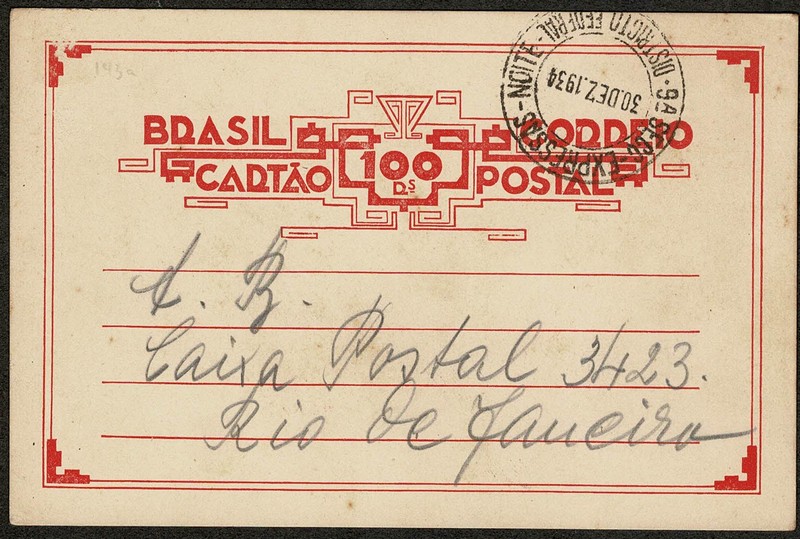 143a
BRASIL CORREIO
100 Rs
CARTÃO POSTAL
9A SEC. EXPRESSAS - NOITE
30.DEZ.1934
DISTRICTO FEDERAL
A. B.
Caixa Postal 3423.
Rio de Janeiro